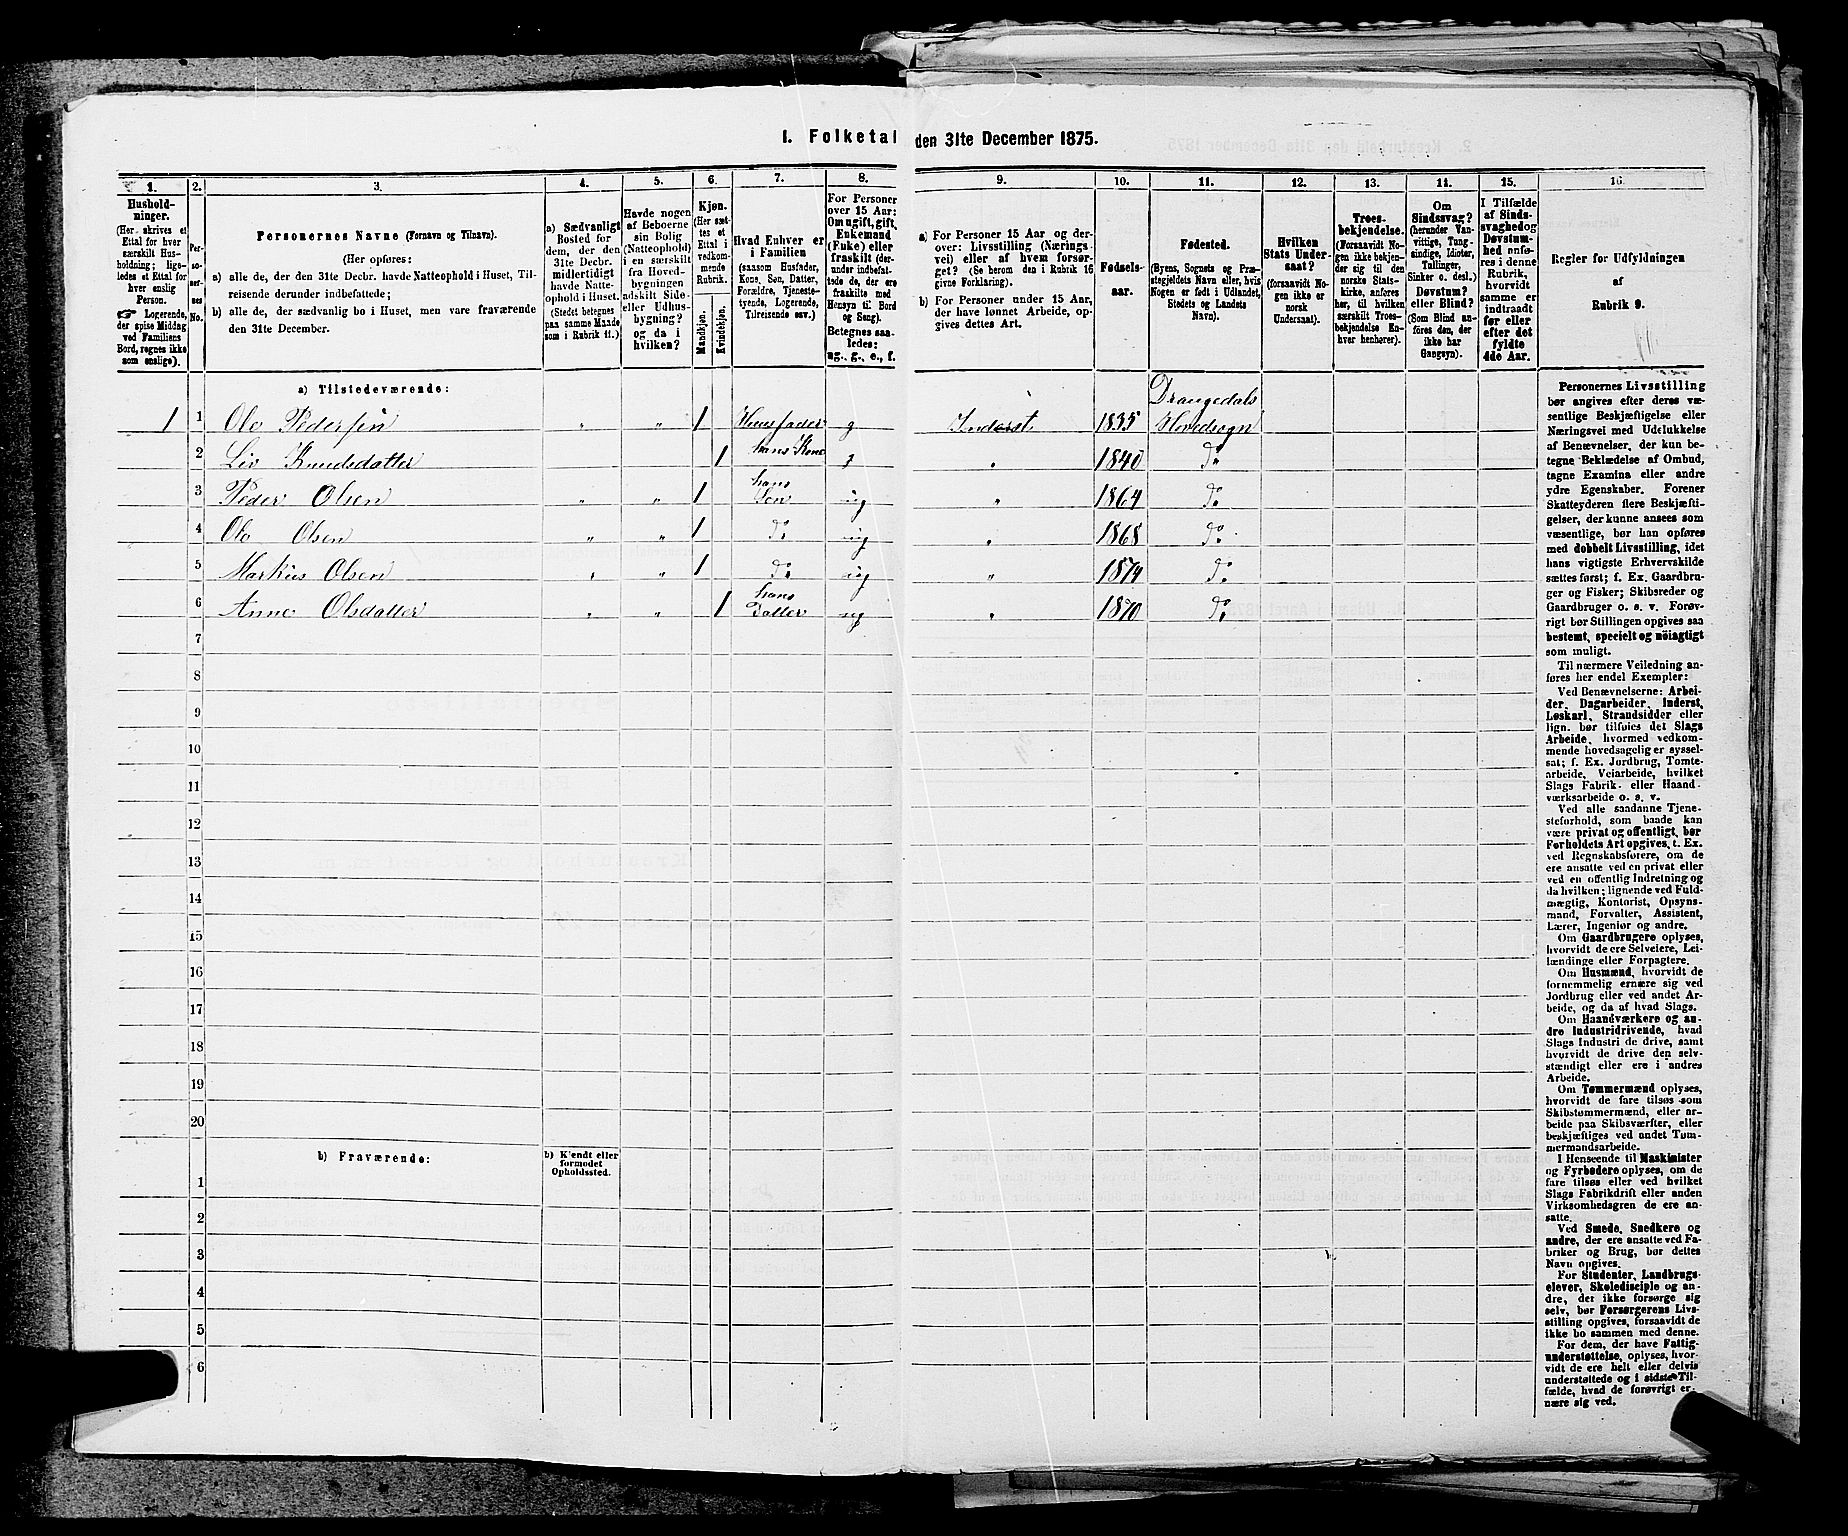 1. Folketal den 31te December 1875.
1. 2. 3. 4. 5. 6. 7. 8. 9. 10. 11. 12. 13. 14. 15. 16.
Husholdninger.
(Her skrives et
Ettal for hver
særskilt Husholdning; ligeledes
et Ettal for
hver enslig
Person.
☞ Logerende,
der spise Middag
ved Familiens
Bord, regnes ikke
som enslige).
Personernes No.
Personernes Navne (Fornavn og Tilnavn).
(Her opføres:
a) alle de, der den 31te Decbr. havde Natteophold i Huset, Tilreisende
derunder indbefattede;
b) alle de, der sædvanlig bo i Huset, men vare fraværende
den 31te December.
a) Sædvanligt
Bosted for
dem, der den
31te Decbr.
midlertidigt
havde Natteophold
i Huset.
(Stedet betegnes
paa samme Maade
som i Rubrik 11.)
Havde nogen
af Beboerne
sin Bolig
(Natteophold)
i en særskilt
fra Hovedbygningen
adskilt Side-
eller Udhusbygning?
og da i
hvilken?
Kjøn.
(Her sættes
et
Ettal i
vedkommende
Rubrik.
Mandkjøn.
Kvindekjøn.
Hvad Enhver er
i Familien
(saasom Husfader,
Kone, Søn, Datter,
Forældre, Tjenestetyende,
Logerende,
Tilreisende osv.)
For Personer
over 15 Aar:
Om ugift, gift,
Enkemand
(Enke) eller
fraskilt (derunder
indbefattede
de, der
ere fraskilte med
Hensyn til Bord
og Seng).
Betegnes saaledes:
ug., g., e., f.
a) For Personer 15 Aar og derover:
Livsstilling (Næringsvei)
eller af hvem forsørget?
(Se herom den i Rubrik 16
givne Forklaring).
b) For Personer under 15 Aar,
der have lønnet Arbeide, opgives
dettes Art.
Fødselsaar.
Fødested.
(Byens, Sognets og Præstegjeldets
Navn eller, hvis
Nogen er født i Udlandet,
Stedets og Landets
Navn).
Hvilken
Stats Undersaat?
(forsaavidt Nogen
ikke er
norsk
Undersaat).
Troesbekjendelse.
(Forsaavidt Nogen
ikke bekjender
sig til den
norske Statskirke,
anføres
her, til hvilken
særskilt Troesbekjendelse
Enhver
henhører).
Om
Sindssvag?
(herunder Vanvittige,
Tungsindige,
Idioter,
Tullinger,
Sinker o. desl.)
Døvstum?
eller Blind?
(Som Blind anføres
den, der
ikke har
Gangsyn).
I Tilfælde
af Sindssvaghed
og
Døvstumhed
anføres
i denne
Rubrik,
hvorvidt
samme er
indtraadt
før eller
efter det
fyldte
4de Aar.
Regler for Udfyldningen
af
Rubrik 9.
a) Tilstedeværende:
1 1 Ole Pedersen " " 1 Huusfader g Inderst 1835 Drangedals Hovedsogn
2 Liv Knudsdatter 1 hans Kone g " 1840 Do
3 Peder Olsen " " 1 hans Søn ug " 1864 Do
4 Ole Olsen " " 1 Do ug " 1868 Do
5 Markus Olsen " " 1 Do ug " 1874 Do
6 Anne Olsdatter " " 1 hans Datter ug " 1870 Do
7
8
9
10
11
12
13
14
15
16
17
18
19
20
b) Fraværende:
b) Kjendt eller
formodet
Opholdssted.
1
2
3
4
5
6
Personernes Livsstilling
bør angives efter deres væsentlige
Beskjæftigelse eller
Næringsvei med Udelukkelse
af Benævnelser, der kun betegne
Beklædelse af Ombud,
tagne Examina eller andre
ydre Egenskaber. Forener
Skatteyderen flere Beskjæftigelser,
der kunne ansees som
væsentlige, bør han opføres
med dobbelt Livsstilling, idet
hans vigtigste Erhvervskilde
sættes først; f. Ex. Gaardbruger
og Fisker; Skibsreder og
Gaardbruger o. s. v. Forøvrigt
bør Stillingen opgives saa
bestemt, specielt og nøiagtigt
som muligt.
Til nærmere Veiledning anføres
her endel Exempler:
Ved Benævnelserne: Arbeider,
Dagarbeider, Inderst,
Løskarl, Strandsidder eller
lign. bør tilføies det Slags
Arbeide, hvormed vedkommende
hovedsagelig er sysselsat;
f. Ex. Jordbrug, Tomtearbeide,
Veiarbeide, hvilket
Slags Fabrik- eller Haandværksarbeide
o. s. v.
Ved alle saadanne Tjenesteforhold,
som baade kan
være privat og offentligt, bør
Forholdets Art opgives, t. Ex.
ved Regnskabsførere, om de
ere ansatte ved en privat eller
ved en offentlig Indretning og
da hvilken; lignende ved Fuldmægtig,
Kontorist, Opsynsmand,
Forvalter, Assistent,
Lærer, Ingeniør og andre.
Om Gaardbrugere oplyses,
hvorvidt de ere Selveiere, Leilændinge
eller Forpagtere.
Om Husmænd, hvorvidt de
fornemmelig ernære sig ved
Jordbrug eller ved andet Arbeide,
og da af hvad Slags.
Om Haandværkere og andre
Industridrivende, hvad
Slags Industri de drive, samt
hvorvidt de drive den selvstændigt
eller ere i andres
Arbeide.
Om Tømmermænd oplyses,
hvorvidt de fare tilsøs som
Skibstømmermænd, eller arbeide
paa Skibsværfter, eller
beskjæftiges ved andet Tømmermandsarbeide.
I Henseende til Maskinister
og Fyrbødere oplyses, om de
fare tilsøs eller ved hvilket
Slags Fabrikdrift eller anden
Virksomhedsgren de ere ansatte.
Ved Smede, Snedkere og
andre, der ere ansatte ved Fabriker
og Brug, bør dettes
Navn opgives.
For Studenter, Landbrugselever,
Skoledisciple og andre,
der ikke forsørge sig
selv, bør Forsørgerens Livsstilling
opgives, forsaavidt de
ikke bo sammen med denne.
For dem, der have Fattigunderstøttelse,
oplyses, hvorvidt
de ere helt eller delvis
understøttede og i sidste Tilfælde,
hvad de forøvrigt ernære
sig ved.